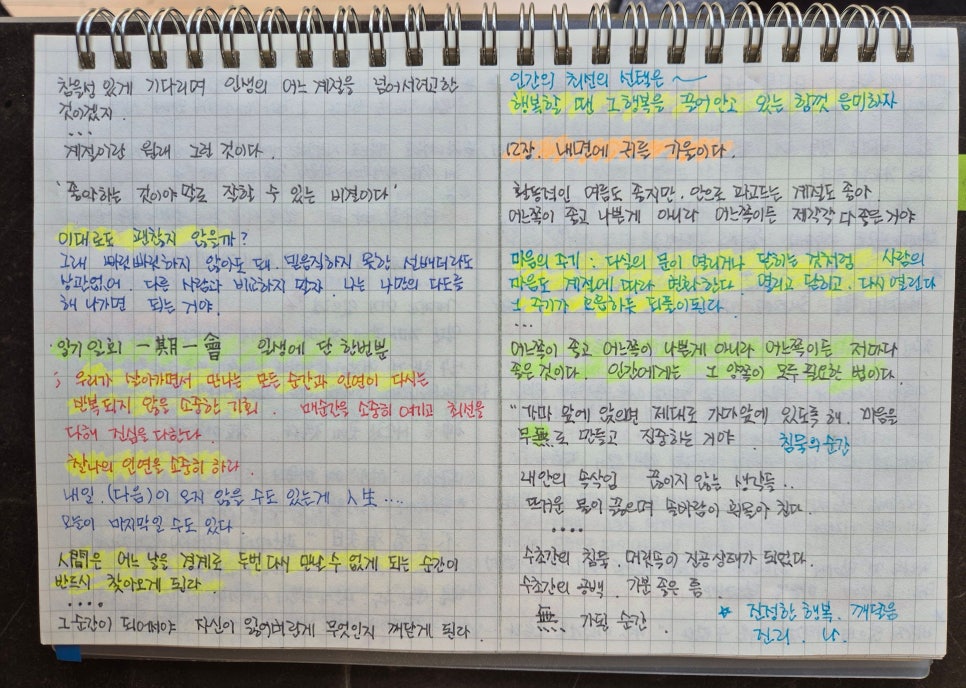 참을성 있게 기다리며 인생의 어느 계절을 넘어서려고한
것이겠지.
...
계절이란 원래 그런 것이다.
'좋아하는 것이야 말로 잘할 수 있는 비결이다'
이대로도 괜찮지 않을까?
그래 빠릿빠릿하지 않아도 돼. 믿음직하지 못한 선배더라도
상관없어. 다른 사람과 비교하지 말자. 나는 나만의 다도를
해 나가면 되는 거야.
일기일회 一期一會 인생에 단 한번뿐
; 우리가 살아가면서 만나는 모든 순간과 인연이 다시는
반복되지 않을 소중한 기회. 매순간을 소중히 여기고 최선을
다해 진심을 다한다.
찰나의 인연을 소중히 하라.
내일.(다음)이 오지 않을 수도 있는게 人生....
오늘이 마지막일 수도 있다.
人間은 어느 날을 경계로 두번 다시 만날 수 없게 되는 순간이
반드시 찾아오게 된다.
....
그순간이 되어서야 자신이 잃어버린게 무엇인지 깨닫게 된다.
인간의 최선의 선택은 ~
행복할 땐 그 행복을 끌어안고 있는 힘껏 음미하자
12장. 내면에 귀를 기울이다.
활동적인 여름도 좋지만. 안으로 파고드는 계절도 좋아.
어느쪽이 좋고 나쁜게 아니라 어느쪽이든 제각각 다 좋은거야
마음의 주기 : 다실의 문이 열리거나 닫히는 것처럼 사람의
마음도 계절에 따라 변화한다. 열리고 닫히고. 다시 열린다
그 주기가 호흡하듯 되풀이된다.
...
어느쪽이 좋고 어느쪽이 나쁜게 아니라 어느쪽이든 저마다
좋은 것이다. 인간에게는 그 양쪽이 모두 필요한 법이다.
"가마 앞에 앉으면 제대로 가마앞에 있도록 해. 마음을
무無로 만들고 집중하는 거야 침묵의 순간
내안의 속삭임 끊이지 않는 생각들..
뜨거운 물이 끓으며 솔바람이 휘몰아 친다.
....
수초간의 침묵. 머릿속이 진공상태가 되었다.
수초간의 공백. 기분 좋은 틈
無. 가 된 순간. ☆ 진정한 행복. 깨달음
진리. 나.